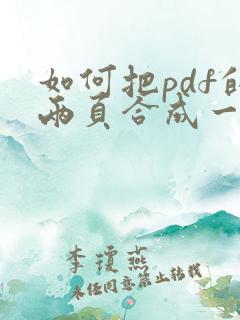 如何把pdf的
两页合成一
李琼燕
未经同意禁止转载